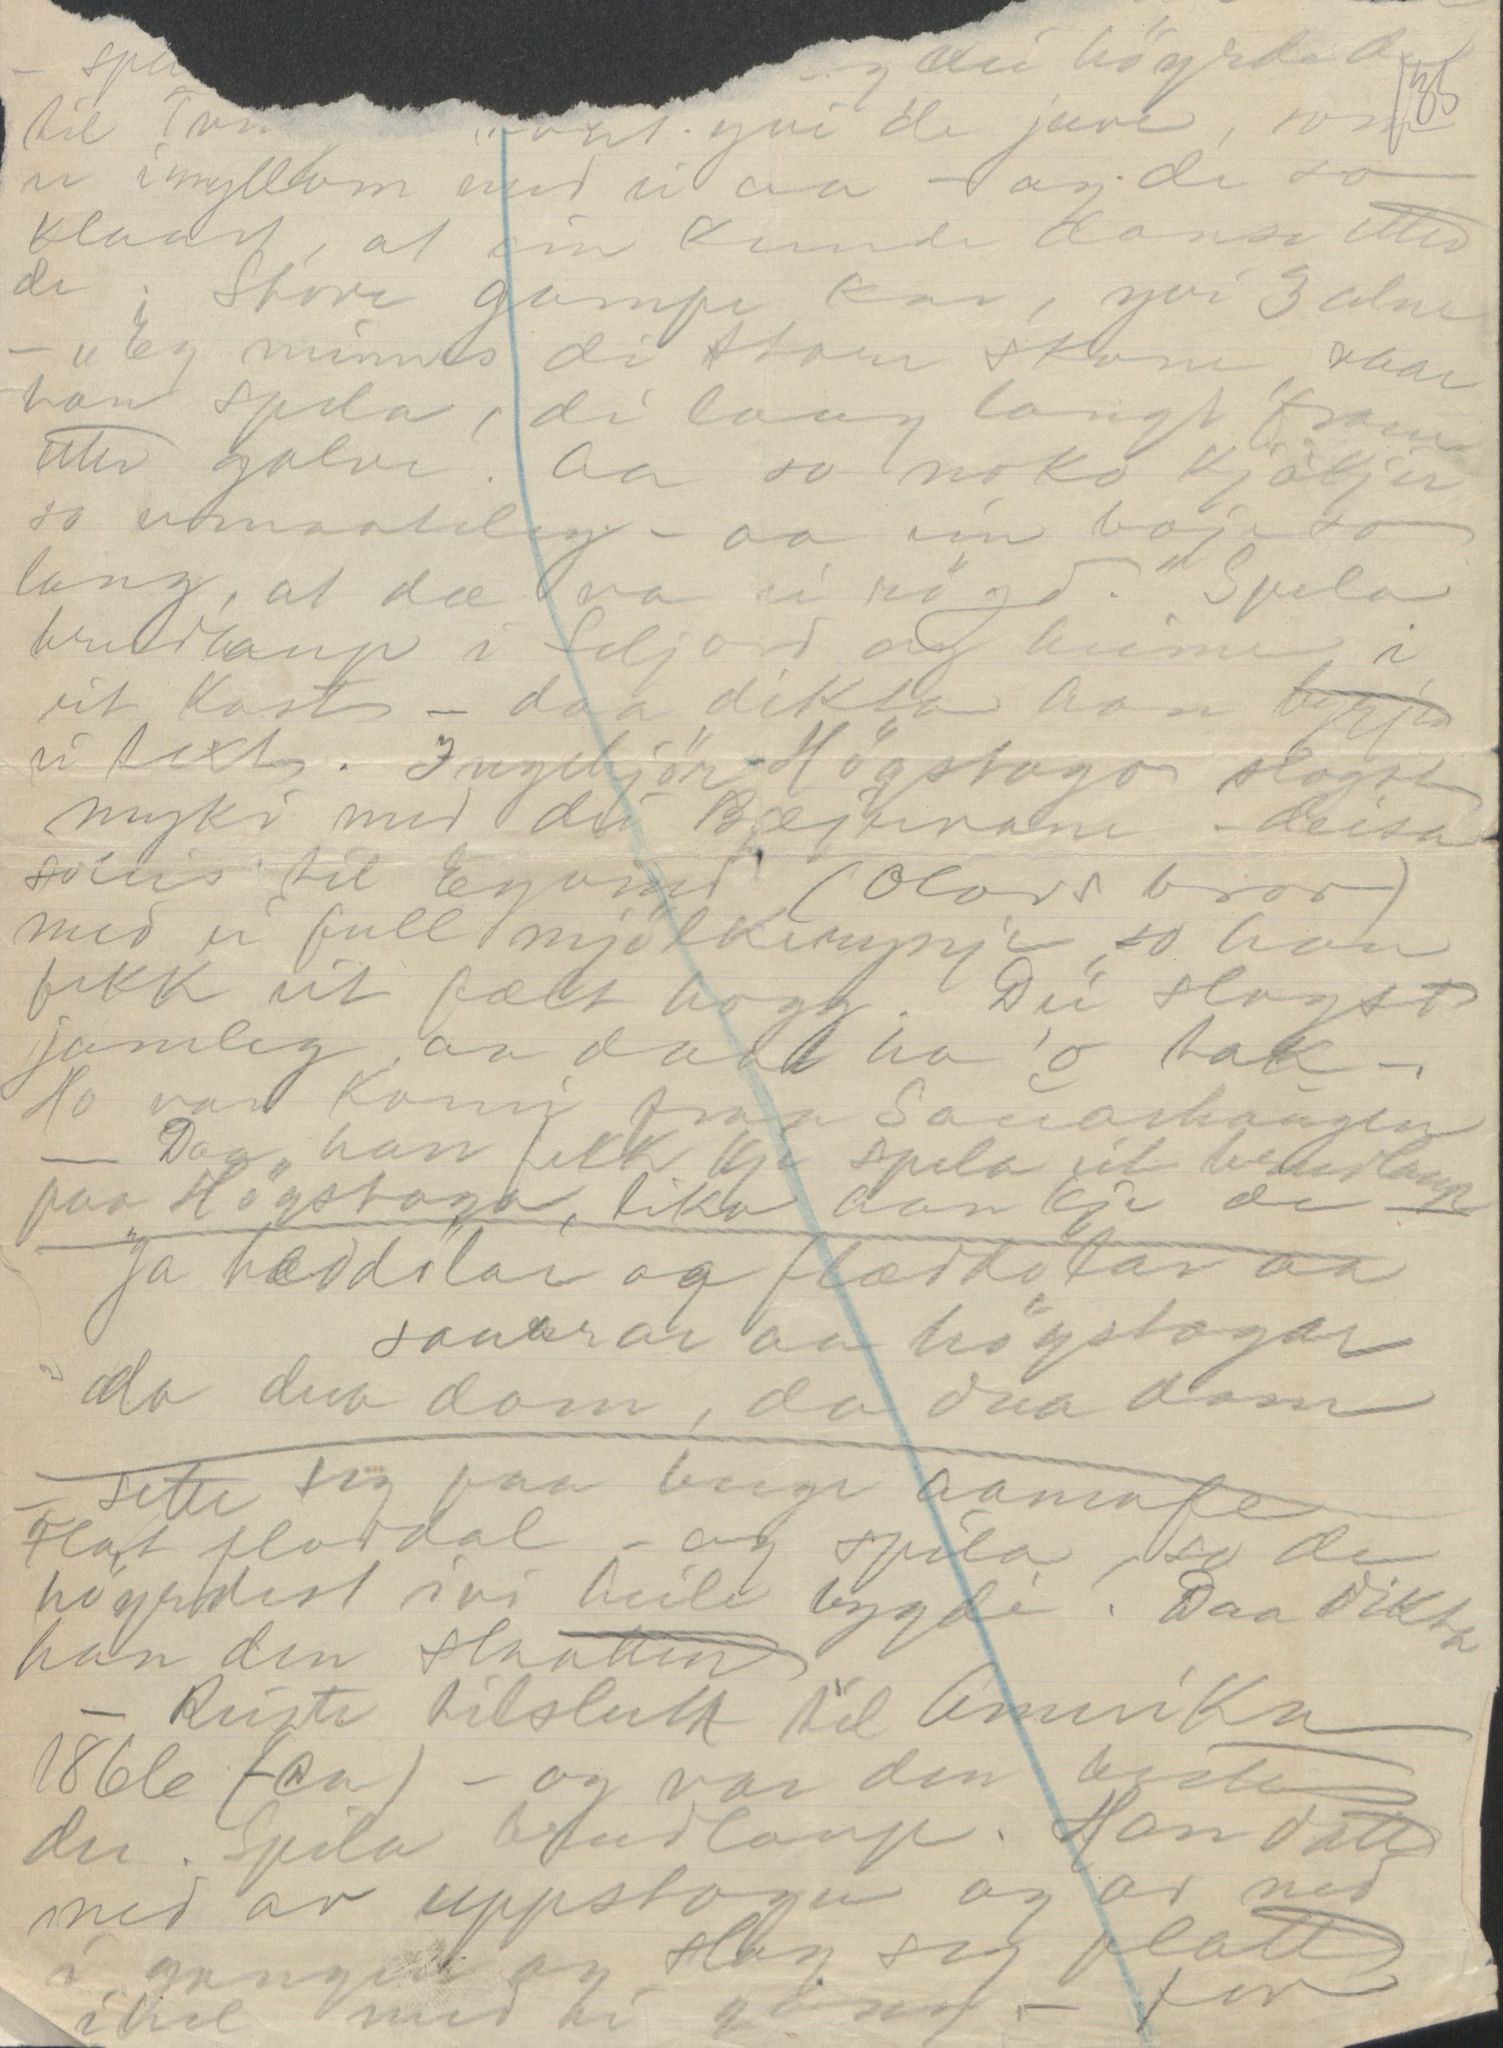 - spel og dei höyrde d
135
til Tvei tvert yvi de juve, som
er imyllom med ei aa - og di so
klaart, at ein kunde danse etter
de. Store gampe kar, yvi 3 alne
- "Eg minnes di store skone, naar
han spela, di laag langt fram
etter golve. Aa so noko kjökjir
so umaateleg - aa ein boje so
lang, at dæ va ei rögd." Spela
brudlaup i Seljord og heime i
eit Kost - daa dikta han
ei text. Ingebjör Högstogo slogst
mykje med dei Bejarane - deisa
soleis til Eyvind (Olavs bror)
med ei full mjölkeringje, so han
fekk eit fælt hogg. Dei slogst
jamleg, aa daa ha 'o tak -.
Ho var komi fraa Sauarhaugen
- Daa han fekk kje spela eit brudlaup
paa Högstogo, lika han kje de -
"Ja hæddölar og flædhötar aa
sauerar aa högstogar
da dea dom, da dea dom
- sette seg paa berge aamafe
Flat flatdal - og spela, so de
höyrdest ivi heile bygdi. Daa dikta
han den slaatten
- Reiste tilslutt til Amerika
1866 (ca) - og var den beste
der. Spela brudlaup. Han datt
ned av uppstogu og ad ned
i gangen og slog seg flatt
ihel med ei gong. - for